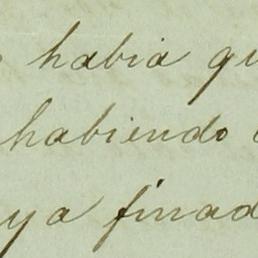 habia qu
habiendo
ya finad